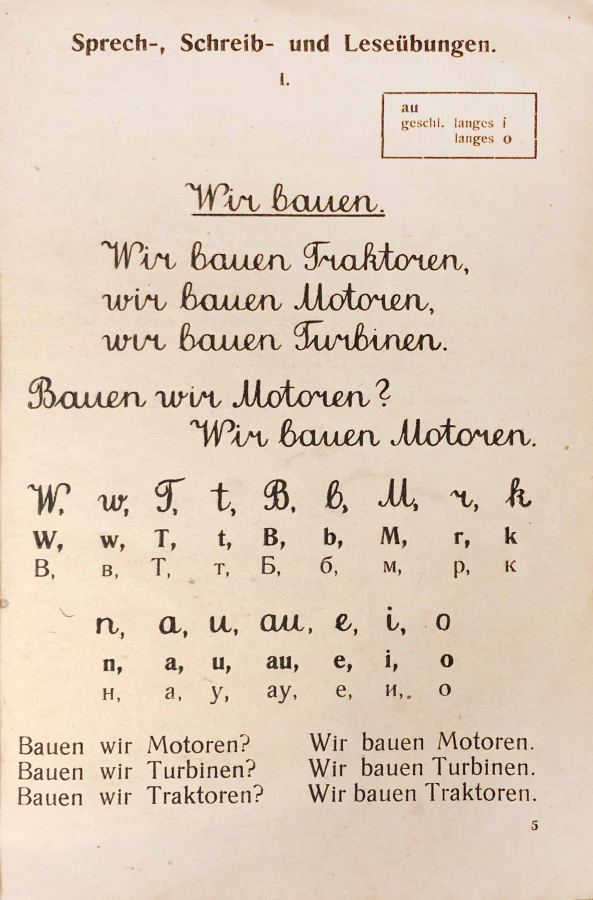 Sprech-, Schreib- und Leseübungen.
I.
au
geschl. langes i
langes o
Wir bauen.
Wir bauen Traktoren,
wir bauen Motoren,
wir bauen Turbinen.
Bauen wir Motoren?
Wir bauen Motoren.
W, w, T, t, B, b, M, r, k
W, w, T, t, B, b, M, r, k
В, в, Т, т, Б, б, м, р, к
n, a, u, au, e, i, o
n, a, u, au, e, i, o
н, а, у, ау, е, и,. о
Bauen wir Motoren? Wir bauen Motoren.
Bauen wir Turbinen? Wir bauen Turbinen.
Bauen wir Traktoren? Wir bauen Traktoren.
5